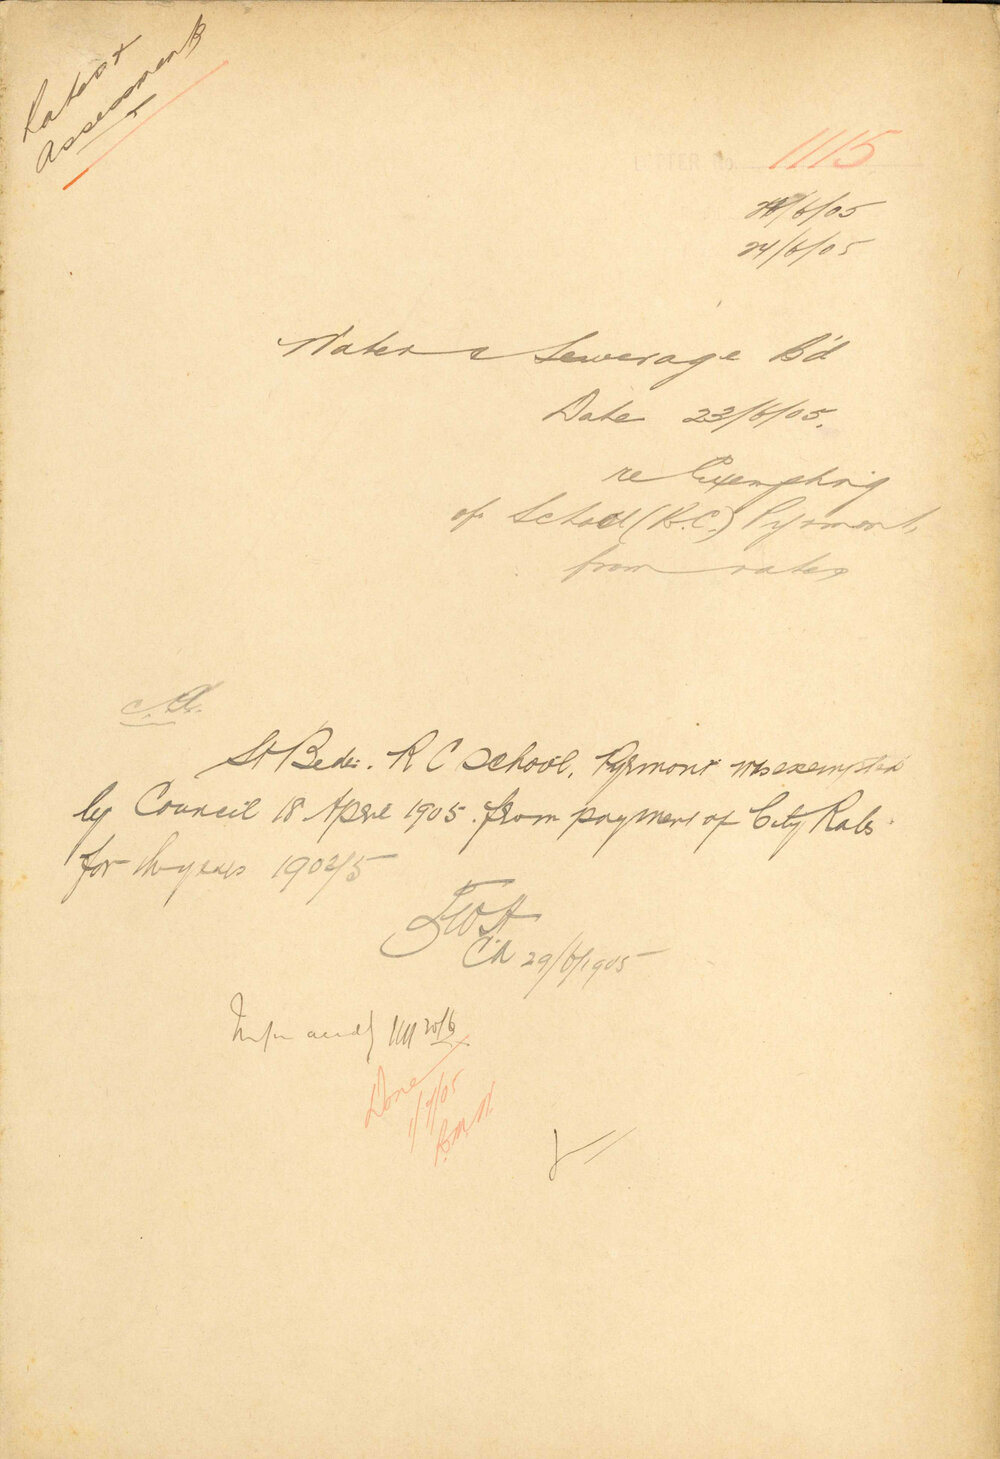 Latest
Assessment
LETTER No. 1115
/6/05
24/6/05
Water & Sewerage B'd
Date 23/6/05.
re Exempting
of School (R.C.) Pyrmont,
from rates
C.A.
St Bedes. R C School, Pyrmont was exempted
by Council 18 April 1905. from payment of City Rates
for the years 1902/5
C.A 29/6/1905
Done
1/7/05